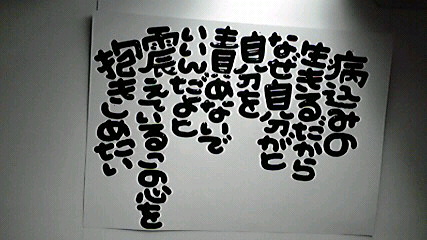 病込みの
生きるだから
なぜ自分がと
自分を
責めないで
いいんだよと
震えているこの心を
抱きしめたい